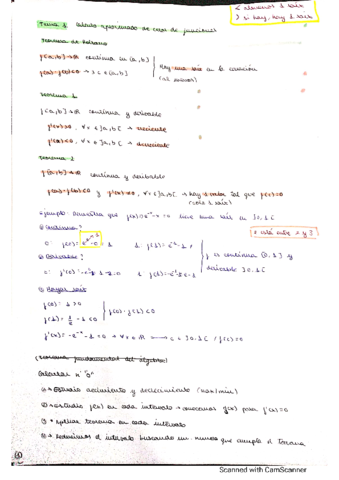 ≤ almenos 1 raiz
> si hay, hay 1 raiz
Tema 4 Cálculo aproximado de ceros de funciones
Teorema de Bolzano
f: [a,b] → R continua en [a,b]
f(a)·f(b)<0 → ∃ c ∈ (a,b)
Hay una raiz en la ecuación
(al menos)
Teorema 1
f: [a,b] → R continua y derivable
f'(x)>0, ∀x ∈ ]a,b[ → creciente
f'(x)<0, ∀x ∈ ]a,b[ → decreciente
Teorema 2
f: [a,b] → R continua y derivable
f(a)·f(b)<0 y f'(x)≠0, ∀x ∈ ]a,b[ → hay tal que f(c)=0
(solo 1 raiz)
Ejemplo: demuestra que f(x)= e⁻ˣ-x=0 tiene una raiz en ]0,1[
① Continua?
0: f(0)= e⁻⁰-0 = 1 1: f(1)= e⁻¹-1
está entre x y 3
② Derivable?
f es continua [0,1] y
derivable ]0,1[
③ Hay raiz
f(0)= 1 >0
f(1)= 1/e - 1 <0
f(0)·f(1)<0
f'(x)= -e⁻ˣ-1 <0 → ∀x ∈ R → c ∈ ]0,1[ / f(c)=0
(Teorema fundamental del álgebra)
Calcular nº "0"
① Estudio crecimiento y decrecimiento (max/min)
② Estudio f(x) en cada intervalo → f'(x)=0
③ Aplicar teorema en cada intervalo
④ Reducimos el intervalo buscando un numero que cumpla el Teorema
Scanned with CamScanner